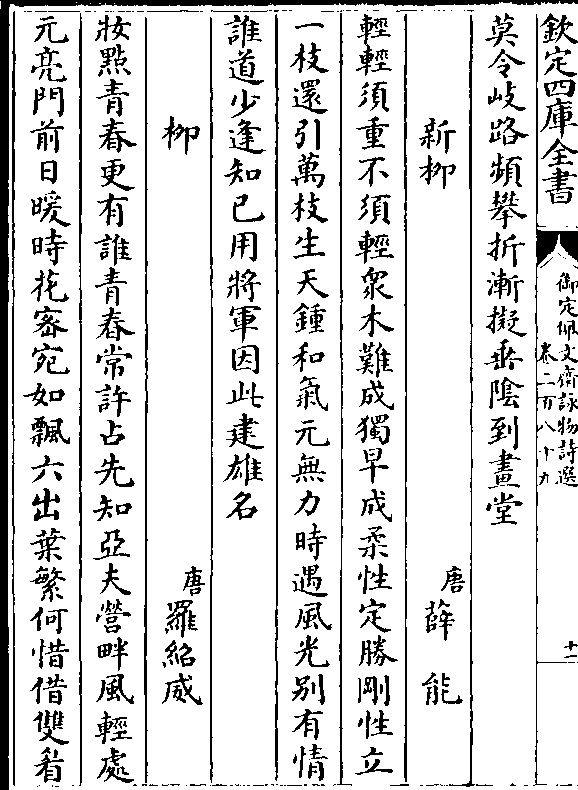 欽定四庫全書
御定佩文齋詠物詩選
卷二百八十九
十一
莫令岐路頻攀折漸擬垂陰到畫堂
新柳
唐
薛能
輕輕須重不須輕衆木難成獨早成柔性定勝剛性立
一枝還引萬枝生天鍾和氣元無力時遇風光别有情
誰道少逢知已用將軍因此建雄名
柳
唐
羅紹威
妝點青春更有誰青春常許占先知亞夫營畔風輕處
元亮門前日暖時花密宛如飄六出葉繁何惜借雙眉